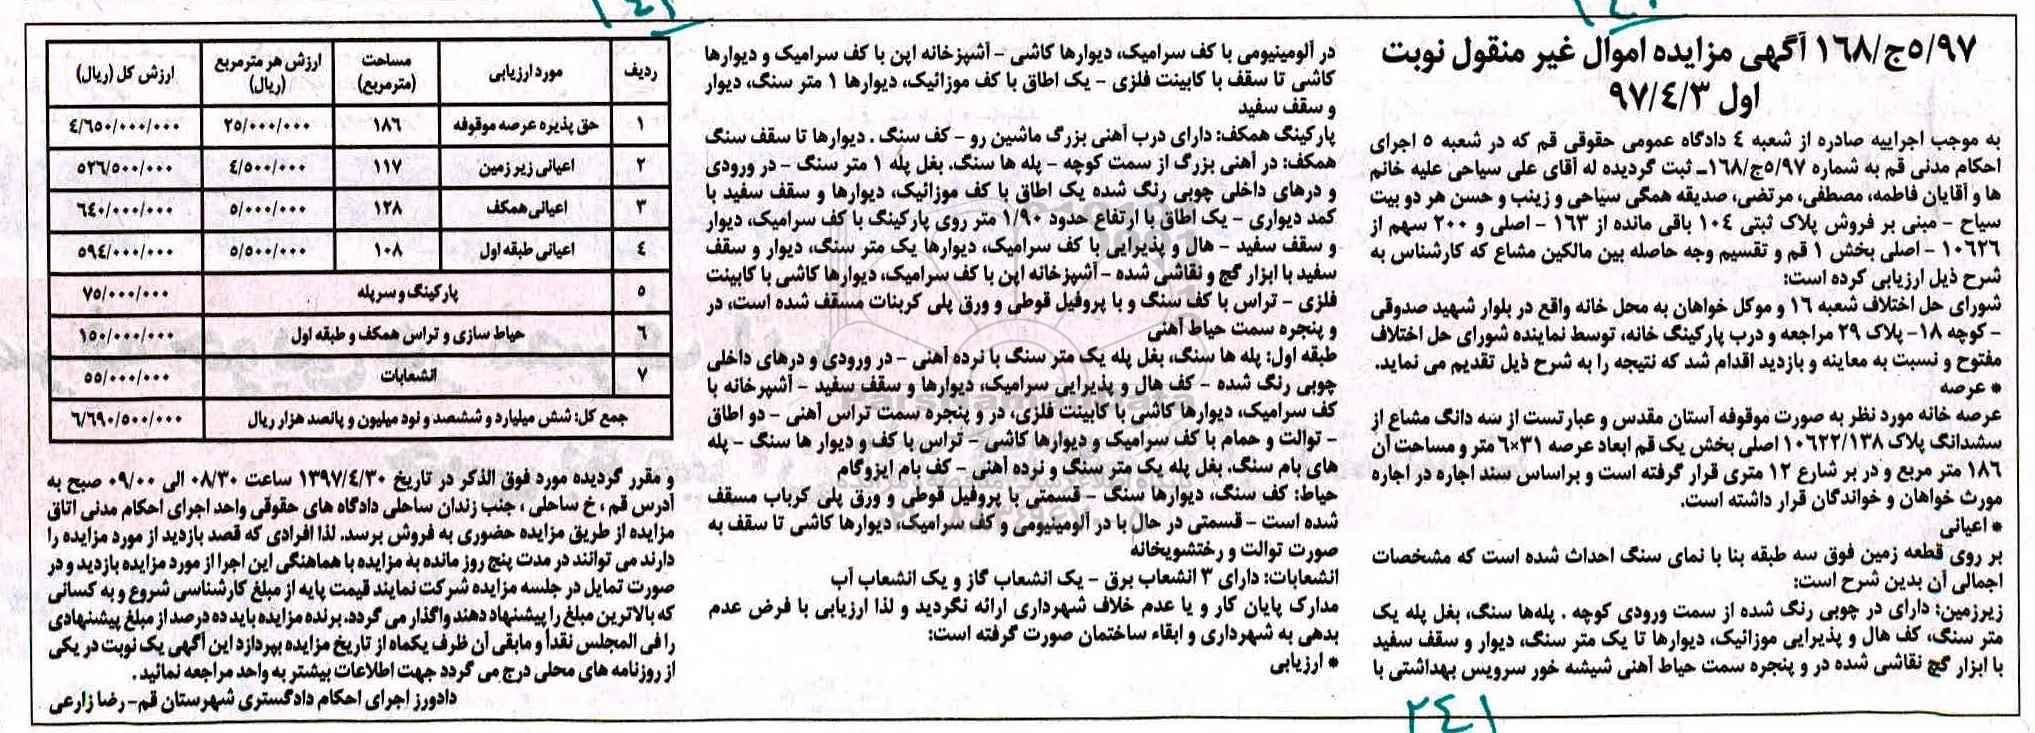 ۵/۹۷ج/۱۶۸ آگهی مزایده اموال غیر منقول نوبت
اول ۹۷/٤/۳
به موجب اجراییه صادره از شعبه ٤ دادگاه عمومی حقوقی قم که در شعبه ۵ اجرای
احکام مدنی قم به شماره ۵/۹۷ج/۱۶۸ـ ثبت گردیده له آقای علی سیاحی علیه خانم
ها و آقایان فاطمه، مصطفی، مرتضی، صدیقه همگی سیاحی و زینب و حسن هر دو بیت
سیاح - مبنی بر فروش پلاک ثبتی ۱۰٤ باقی مانده از ۱۶۳ - اصلی و ۲۰۰ سهم از
۱۰۶۲۶ - اصلی بخش ۱ قم و تقسیم وجه حاصله بین مالکین مشاع که کارشناس به
شرح ذیل ارزیابی کرده است:
شورای حل اختلاف شعبه ۱۶ و موکل خواهان به محل خانه واقع در بلوار شهید صدوقی
- کوچه ۱۸- پلاک ۲۹ مراجعه و درب پارکینگ خانه، توسط نماینده شورای حل اختلاف
مفتوح و نسبت به معاینه و بازدید اقدام شد که نتیجه را به شرح ذیل تقدیم می نماید.
* عرصه
عرصه خانه مورد نظر به صورت موقوفه آستان مقدس و عبارتست از سه دانگ مشاع از
سشدانگ پلاک ۱۰۶۲۲/۱۳۸ اصلی بخش یک قم ابعاد عرصه ۳۱×۶ متر و مساحت آن
۱۸۶ متر مربع و در بر شارع ۱۲ متری قرار گرفته است و براساس سند اجاره در اجاره
مورث خواهان و خواندگان قرار داشته است.
* اعیانی
بر روی قطعه زمین فوق سه طبقه بنا با نمای سنگ احداث شده است که مشخصات
اجمالی آن بدین شرح است:
زیرزمین: دارای در چوبی رنگ شده از سمت ورودی کوچه . پله‌ها سنگ، بغل پله یک
متر سنگ، کف هال و پذیرایی موزائیک، دیوارها تا یک متر سنگ، دیوار و سقف سفید
با ابزار گچ نقاشی شده در و پنجره سمت حیاط آهنی شیشه خور سرویس بهداشتی با
در آلومینیومی با کف سرامیک، دیوارها کاشی - آشپزخانه اپن با کف سرامیک و دیوارها
کاشی تا سقف با کابینت فلزی - یک اطاق با کف موزائیک، دیوارها ۱ متر سنگ، دیوار
و سقف سفید
پارکینگ همکف: دارای درب آهنی بزرگ ماشین رو - کف سنگ . دیوارها تا سقف سنگ
همکف: در آهنی بزرگ از سمت کوچه - پله ها سنگ، بغل پله ۱ متر سنگ - در ورودی
و درهای داخلی چوبی رنگ شده یک اطاق با کف موزائیک، دیوارها و سقف سفید با
کمد دیواری - یک اطاق با ارتفاع حدود ۱/۹۰ متر روی پارکینگ با کف سرامیک، دیوار
و سقف سفید - هال و پذیرایی با کف سرامیک، دیوارها یک متر سنگ، دیوار و سقف
سفید با ابزار گچ و نقاشی شده - آشپزخانه اپن با کف سرامیک، دیوارها کاشی با کابینت
فلزی - تراس با کف سنگ و با پروفیل قوطی و ورق پلی کربنات مسقف شده است، در
و پنجره سمت حیاط آهنی
طبقه اول: پله ها سنگ، بغل پله یک متر سنگ با نرده آهنی - در ورودی و درهای داخلی
چوبی رنگ شده - کف هال و پذیرایی سرامیک، دیوارها و سقف سفید - آشپرخانه با
کف سرامیک، دیوارها کاشی با کابینت فلزی، در و پنجره سمت تراس آهنی - دو اطاق
- توالت و حمام با کف سرامیک و دیوارها کاشی - تراس با کف و دیوار ها سنگ - پله
های بام سنگ، بغل پله یک متر سنگ و نرده آهنی - کف بام ایزوگام
حیاط: کف سنگ، دیوارها سنگ - قسمتی با پروفیل قوطی و ورق پلی کرباب مسقف
شده است - قسمتی در حال با در آلومینیومی و کف سرامیک، دیوارها کاشی تا سقف به
صورت توالت و رختشویخانه
انشعابات: دارای ۳ انشعاب برق - یک انشعاب گاز و یک انشعاب آب
مدارک پایان کار و یا عدم خلاف شهرداری ارائه نگردید و لذا ارزیابی با فرض عدم
بدهی به شهرداری و ابقاء ساختمان صورت گرفته است:
* ارزیابی
ردیف مورد ارزیابی مساحت (مترمربع) ارزش هر مترمربع (ریال) ارزش کل (ریال)
۱ حق پذیره عرصه موقوفه ۱۸۶ ۲۵/۰۰۰/۰۰۰ ٤/۶۵۰/۰۰۰/۰۰۰
۲ اعیانی زیر زمین ۱۱۷ ٤/۵۰۰/۰۰۰ ۵۲۶/۵۰۰/۰۰۰
۳ اعیانی همکف ۱۲۸ ۵/۰۰۰/۰۰۰ ۶٤۰/۰۰۰/۰۰۰
٤ اعیانی طبقه اول ۱۰۸ ۵/۵۰۰/۰۰۰ ۵۹٤/۰۰۰/۰۰۰
۵ پارکینگ و سرپله ۷۵/۰۰۰/۰۰۰
۶ حیاط سازی و تراس همکف و طبقه اول ۱۵۰/۰۰۰/۰۰۰
۷ انشعابات ۵۵/۰۰۰/۰۰۰
جمع کل: شش میلیارد و ششصد و نود میلیون و پانصد هزار ریال ۶/۶۹۰/۵۰۰/۰۰۰
و مقرر گردیده مورد فوق الذکر در تاریخ ۱۳۹۷/٤/۳۰ ساعت ۰۸/۳۰ الی ۰۹/۰۰ صبح به
آدرس قم ، خ ساحلی ، جنب زندان ساحلی دادگاه های حقوقی واحد اجرای احکام مدنی اتاق
مزایده از طریق مزایده حضوری به فروش برسد. لذا افرادی که قصد بازدید از مورد مزایده را
دارند می توانند در مدت پنج روز مانده به مزایده با هماهنگی این اجرا از مورد مزایده بازدید و در
صورت تمایل در جلسه مزایده شرکت نمایند قیمت پایه از مبلغ کارشناسی شروع و به کسانی
که بالاترین مبلغ را پیشنهاد دهند واگذار می گردد. برنده مزایده باید ده درصد از مبلغ پیشنهادی
را فی المجلس نقداً و مابقی آن ظرف یکماه از تاریخ مزایده بپردازد این آگهی یک نوبت در یکی
از روزنامه های محلی درج می گردد جهت اطلاعات بیشتر به واحد مراجعه نمائید .
دادورز اجرای احکام دادگستری شهرستان قم- رضا زارعی
۲٤۱